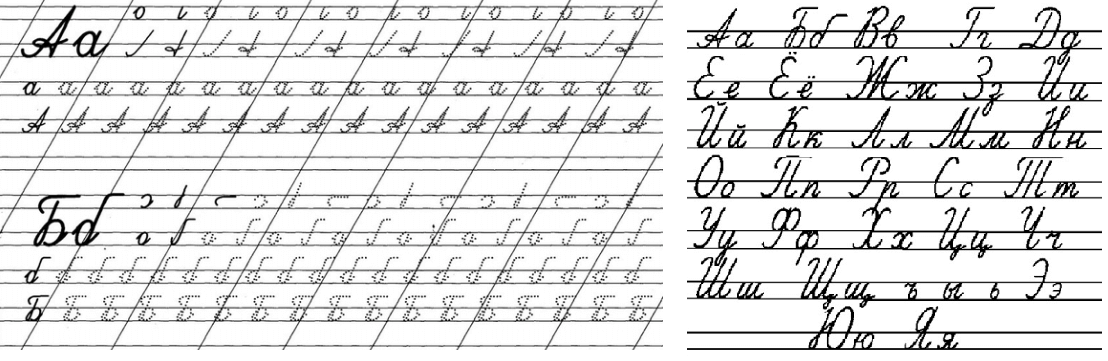 Аа
а а а а а а а а а а а а а а а а а
А А А А А А А А А А А А А А А А
Бб
б б б б б б б б б б б б б б б б б б б б б б
Б Б Б Б Б Б Б Б Б Б Б Б Б Б Б Б Б
Аа Бб Вв Гг Дд
Ее Ёё Жж Зз Ии
Йй Кк Лл Мм Нн
Оо Пп Рр Сс Тт
Уу Фф Хх Цц Чч
Шш Щщ ъ ы ь Ээ
Юю Яя